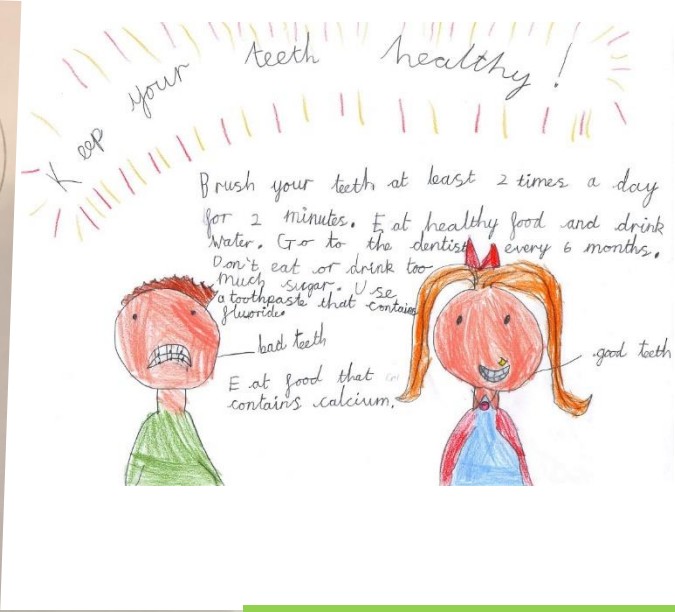 Keep your teeth healthy!
Brush your teeth at least 2 times a day
for 2 minutes. Eat healthy food and drink
water. Go to the dentist every 6 months.
Don't eat or drink too
much sugar. Use
a toothpaste that contains
fluoride.
bad teeth
good teeth
Eat food that
contains calcium.